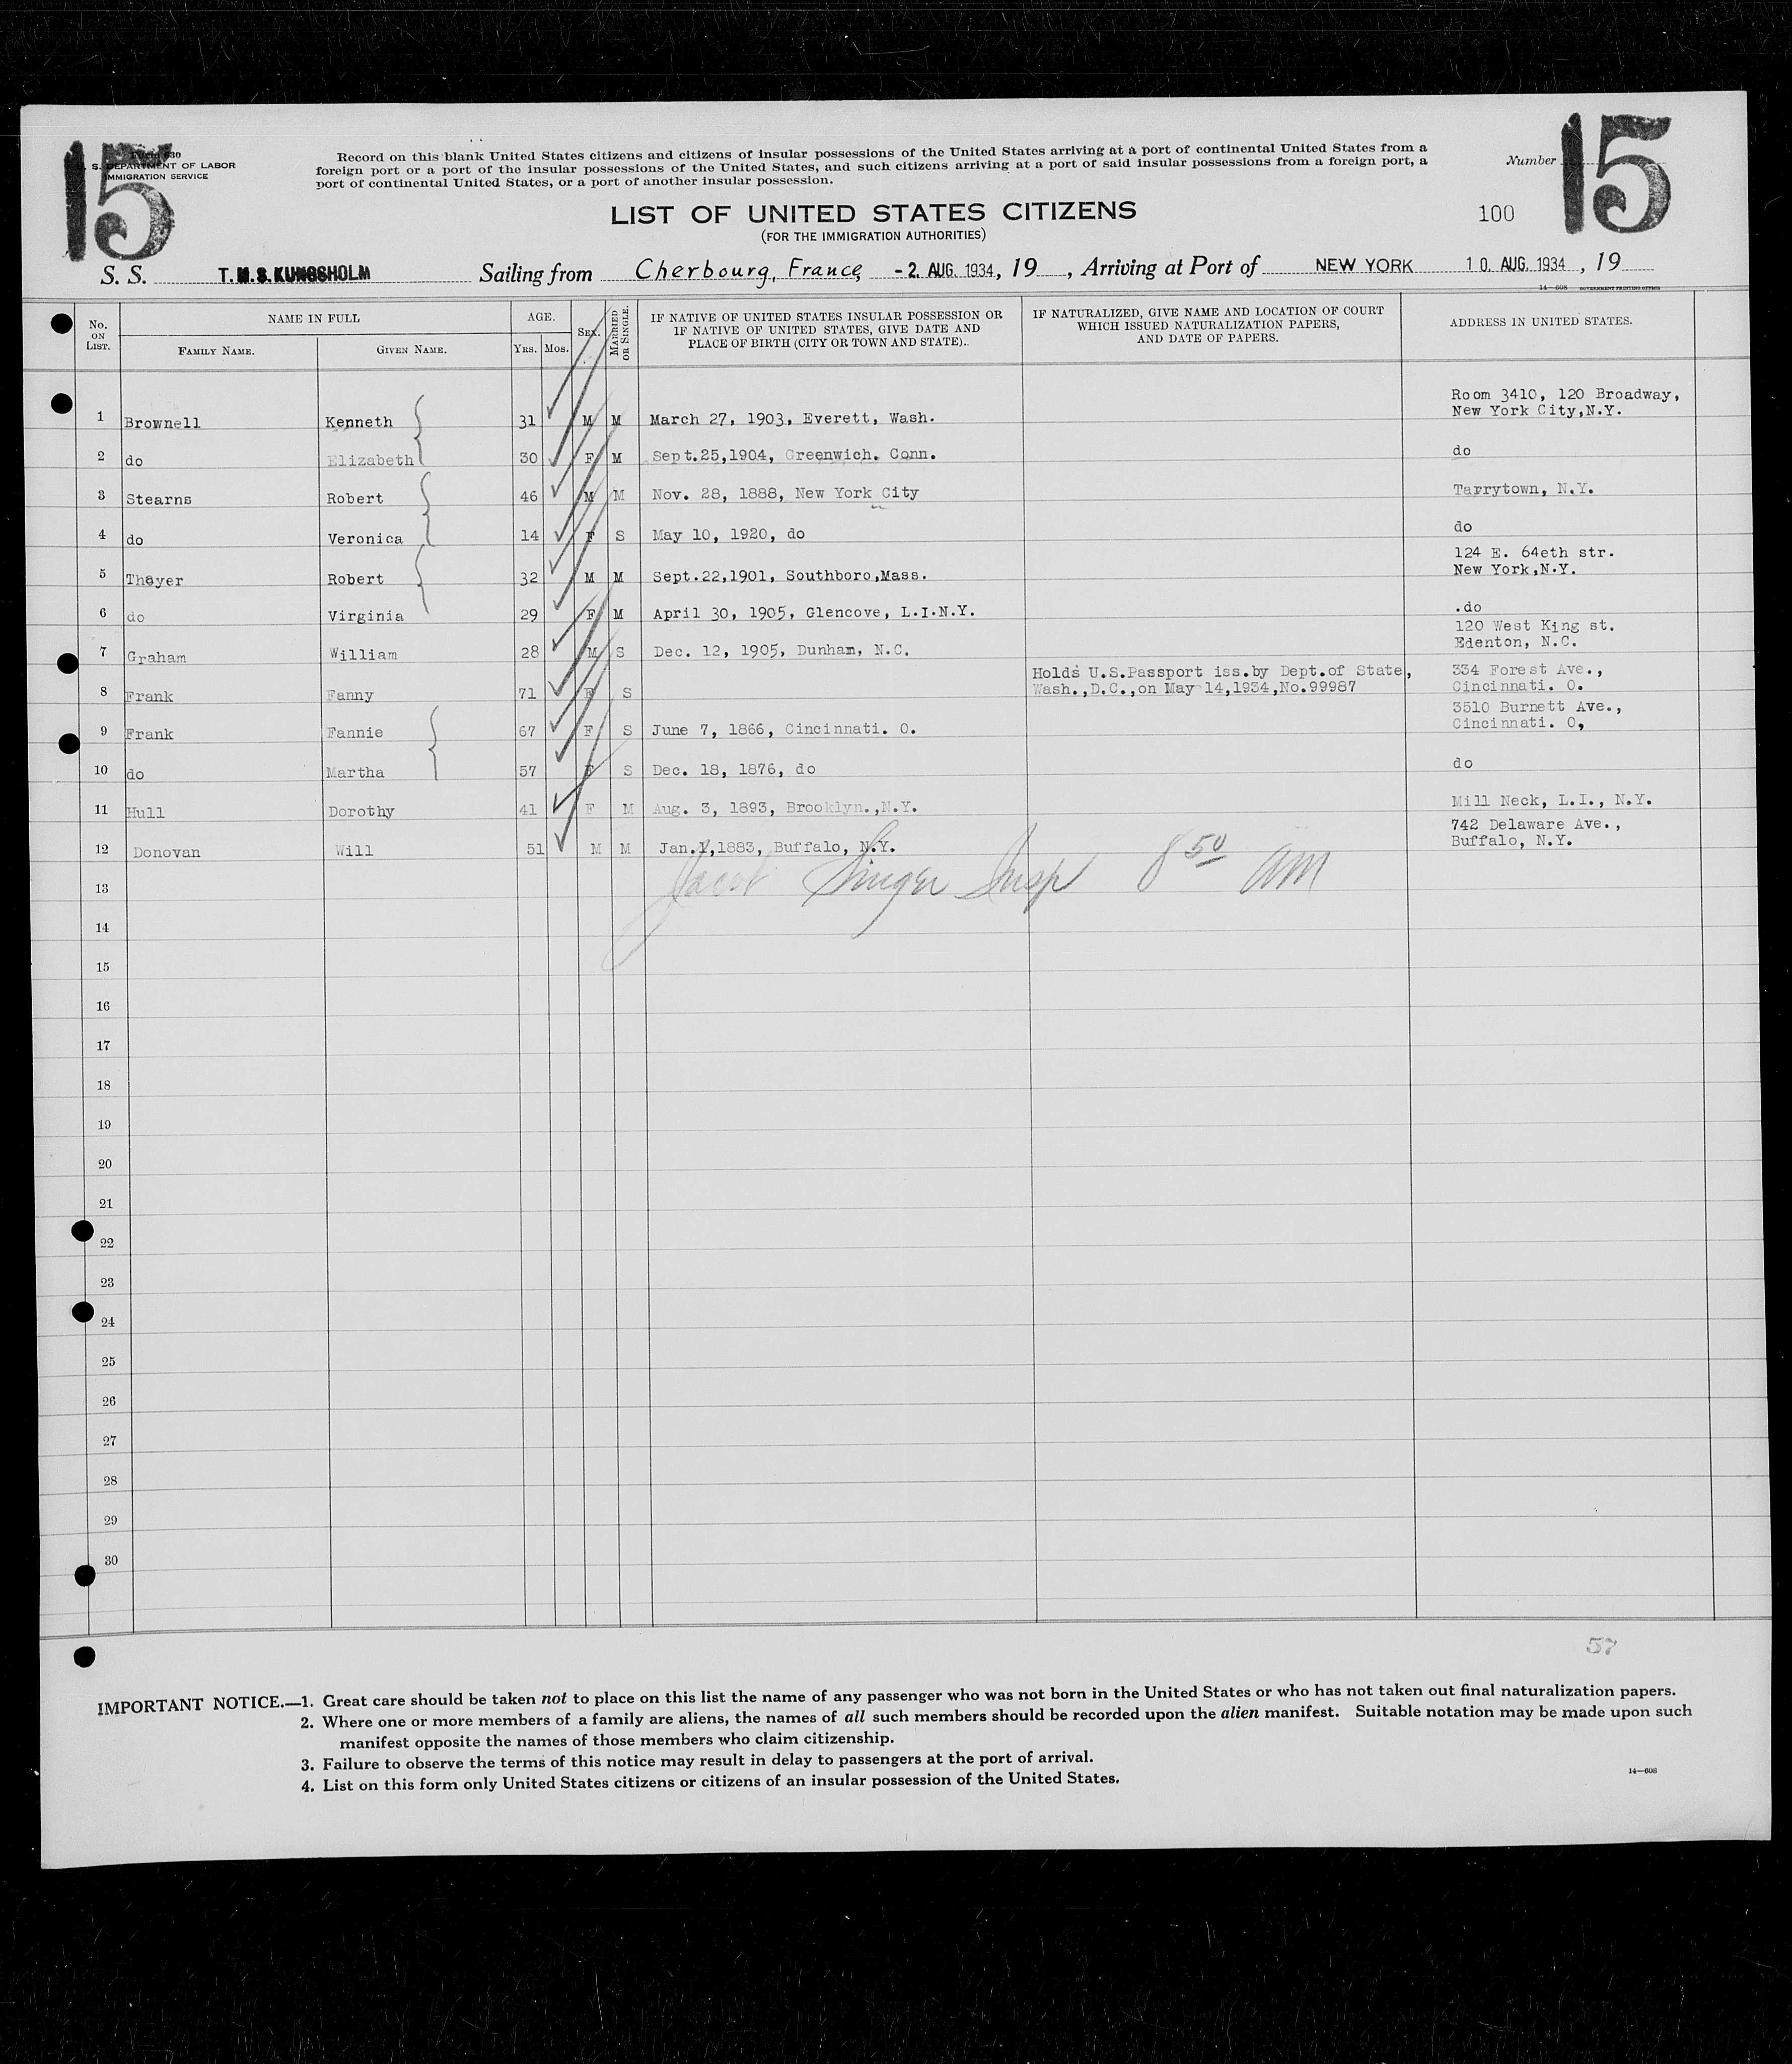 15
Form 630
U. S. DEPARTMENT OF LABOR
IMMIGRATION SERVICE
Record on this blank United States citizens and citizens of insular possessions of the United States arriving at a port of continental United States from a
foreign port or a port of the insular possessions of the United States, and such citizens arriving at a port of said insular possessions from a foreign port, a
port of continental United States, or a port of another insular possession.
Number 15
LIST OF UNITED STATES CITIZENS
100
(FOR THE IMMIGRATION AUTHORITIES)
S. S. T.M.S. KUNGSHOLM Sailing from Cherbourg, France, -2. AUG. 1934, 19 , Arriving at Port of NEW YORK 10. AUG. 1934 , 19
14—608 GOVERNMENT PRINTING OFFICE
No. ON LIST. NAME IN FULL AGE. SEX. MARRIED OR SINGLE. IF NATIVE OF UNITED STATES INSULAR POSSESSION OR IF NATIVE OF UNITED STATES, GIVE DATE AND PLACE OF BIRTH (CITY OR TOWN AND STATE). IF NATURALIZED, GIVE NAME AND LOCATION OF COURT WHICH ISSUED NATURALIZATION PAPERS, AND DATE OF PAPERS. ADDRESS IN UNITED STATES.
FAMILY NAME. GIVEN NAME. YRS. MOS.
Room 3410, 120 Broadway,
1 Brownell Kenneth 31 M M March 27, 1903, Everett, Wash. New York City,N.Y.
2 do Elizabeth 30 F M Sept.25,1904, Greenwich. Conn. do
3 Stearns Robert 46 M M Nov. 28, 1888, New York City Tarrytown, N.Y.
4 do Veronica 14 F S May 10, 1920, do do
124 E. 64eth str.
5 Thayer Robert 32 M M Sept.22,1901, Southboro,Mass. New York,N.Y.
6 do Virginia 29 F M April 30, 1905, Glencove, L.I.N.Y. .do
120 West King st.
7 Graham William 28 M S Dec. 12, 1905, Dunham, N.C. Edenton, N.C.
Holds U.S.Passport iss.by Dept.of State, 334 Forest Ave.,
8 Frank Fanny 71 F S Wash.,D.C.,on May 14,1934,No.99987 Cincinnati. O.
3510 Burnett Ave.,
9 Frank Fannie 67 F S June 7, 1866, Cincinnati. O. Cincinnati. O,
10 do Martha 57 F S Dec. 18, 1876, do do
11 Hull Dorothy 41 F M Aug. 3, 1893, Brooklyn.,N.Y. Mill Neck, L.I., N.Y.
742 Delaware Ave.,
12 Donovan Will 51 M M Jan.1,1883, Buffalo, N.Y. Buffalo, N.Y.
Jacob Singer Insp 8 50 AM
13
14
15
16
17
18
19
20
21
22
23
24
25
26
27
28
29
30
57
IMPORTANT NOTICE.—1. Great care should be taken not to place on this list the name of any passenger who was not born in the United States or who has not taken out final naturalization papers.
2. Where one or more members of a family are aliens, the names of all such members should be recorded upon the alien manifest. Suitable notation may be made upon such
manifest opposite the names of those members who claim citizenship.
3. Failure to observe the terms of this notice may result in delay to passengers at the port of arrival.
4. List on this form only United States citizens or citizens of an insular possession of the United States.
14—608